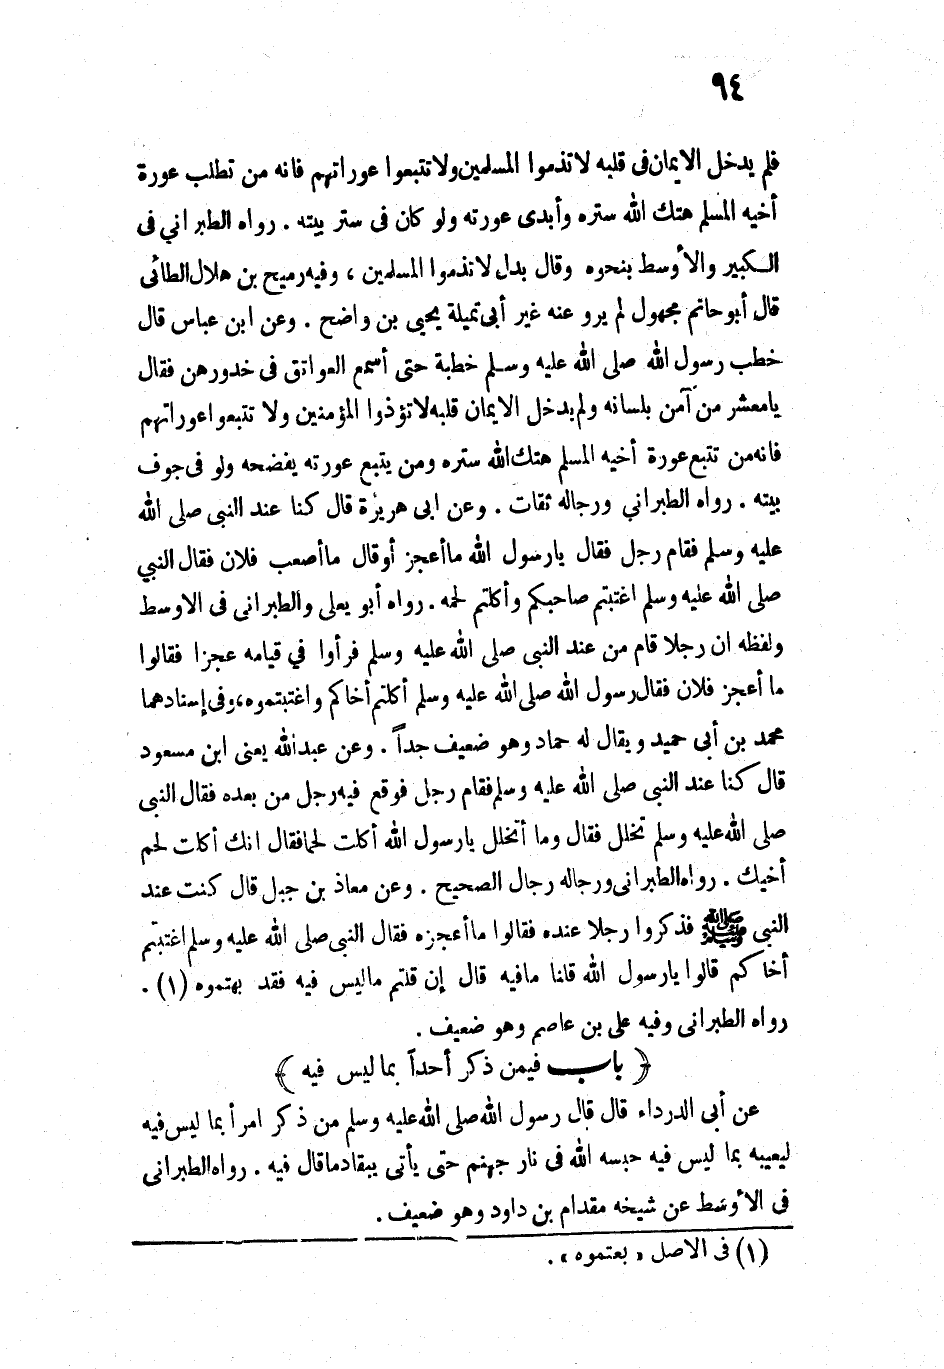 ٩٤
فلم يدخل الايمان فى قلبه لا تذموا المسلمين ولا تتبعوا عوراتهم فانه من تطلب عورة
أخيه المسلم هتك الله ستره وأبدى عورته ولو كان فى ستر بيته . رواه الطبراني فى
الكبير والأوسط بنحوه وقال بدل لا تذموا المسلمين ، وفيه رميح بن هلال الطائى
قال أبو حاتم مجهول لم يرو عنه غير أبى تميلة يحيى بن واضح . وعن ابن عباس قال
خطب رسول الله صلى الله عليه وسلم خطبة حتى أسمع العواتق فى خدورهن فقال
يامعشر من آمن بلسانه ولم يدخل الايمان قلبه لا تؤذوا المؤمنين ولا تتبعوا عوراتهم
فانه من تتبع عورة أخيه المسلم هتك الله ستره ومن يتبع عورته يفضحه ولو فى جوف
بيته . رواه الطبراني ورجاله ثقات . وعن ابى هريرة قال كنا عند النبى صلى الله
عليه وسلم فقام رجل فقال يارسول الله ما أعجز أوقال ما أصعب فلان فقال النبي
صلى الله عليه وسلم اغتبتم صاحبكم وأكلتم لحمه . رواه أبو يعلى والطبرانى فى الاوسط
ولفظه ان رجلا قام من عند النبى صلى الله عليه وسلم فرأوا في قيامه عجزا فقالوا
ما أعجز فلان فقال رسول الله صلى الله عليه وسلم أكلتم أخاكم واغتبتموه، وفى إسنادهما
محمد بن أبى حميد ويقال له حماد وهو ضعيف جداً . وعن عبدالله يعنى ابن مسعود
قال كنا عند النبى صلى الله عليه وسلم فقام رجل فوقع فيه رجل من بعده فقال النبى
صلى الله عليه وسلم تخلل فقال وما أتخلل يارسول الله أكلت لحما فقال انك أكلت لحم
أخيك . رواه الطبرانى ورجاله رجال الصحيح . وعن معاذ بن جبل قال كنت عند
النبى ﷺ فذكروا رجلا عنده فقالوا ما أعجزه فقال النبى صلى الله عليه وسلم اغتبتم
أخاكم قالوا يارسول الله قلنا مافيه قال إن قلتم ماليس فيه فقد بهتموه (١) .
رواه الطبرانى وفيه على بن عاصم وهو ضعيف .
﴿ باب فيمن ذكر أحداً بما ليس فيه ﴾
عن أبى الدرداء قال قال رسول الله صلى الله عليه وسلم من ذكر امرأ بما ليس فيه
ليعيبه بما ليس فيه حبسه الله فى نار جهنم حتى يأتى بنفاد ماقال فيه . رواه الطبرانى
فى الأوسط عن شيخه مقدام بن داود وهو ضعيف .
(١) فى الاصل « بعتموه » .